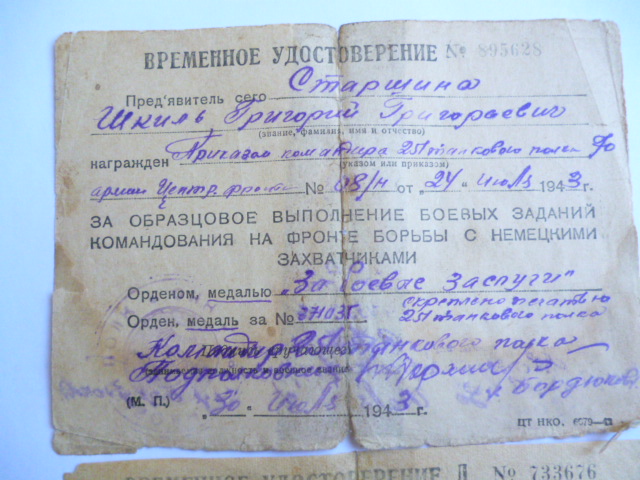 ВРЕМЕННОЕ УДОСТОВЕРЕНИЕ № 895628
Пред'явитель сего Старшина
Шкиль Григорий Григорьевич
(звание, фамилия, имя и отчество)
награжден Приказом командира 251 танкового полка
(указом или приказом)
армии Центр. фронта № 08/н от „24" июля 1943 г.
ЗА ОБРАЗЦОВОЕ ВЫПОЛНЕНИЕ БОЕВЫХ ЗАДАНИЙ
КОМАНДОВАНИЯ НА ФРОНТЕ БОРЬБЫ С НЕМЕЦКИМИ
ЗАХВАТЧИКАМИ
Орденом, медалью „За боевые заслуги"
скреплено печатью
Орден, медаль за № 251 танкового полка
Командир 251 танкового полка
(М. П.) „30" июля 1943 г.
ЦТ НКО.
ВРЕМЕННОЕ УДОСТОВЕРЕНИЕ Д № 733676